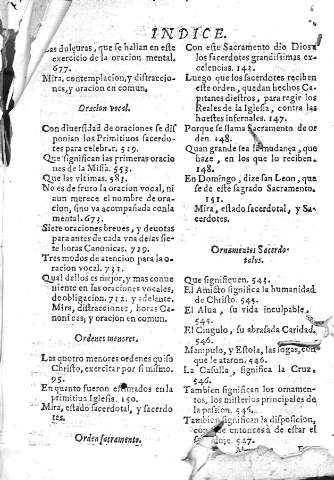 INDICE.
Las dulçuras, que se hallan en este
exercicio de la oracion mental.
677.
Mira, contemplacion, y distraccio-
nes, y oracion en comun.
Oracion vocal.
Con diversidad de oraciones se dis-
ponian los Primitivos sacerdo-
tes para celebrar. 529.
Que significan las primeras oracio
nes de la Missa. 553.
Que las vltimas. 583.
No es de fruto la oracion vocal, ni
aun merece el nombre de ora-
cion, sino va acompañada con la
mental. 673.
Siete oraciones breues, y deuotas
para antes de cada vna de las sie-
te horas Canonicas. 729.
Tres modos de atencion para la o-
racion vocal. 731.
Qual dellos es mejor, y mas conue
niente en las oraciones vocales,
de obligacion. 712. y adelante.
Mira, distracciones, horas Ca-
nonicas; y oracion en comun.
Ordenes menores.
Las quatro menores ordenes quiso
Christo, exercitar por si mismo.
95.
En quanto fueron estimados en la
primitiua Iglesia. 150.
Mira, estado sacerdotal, y sacerdo
tes.
Orden sacramento.
Con este Sacramento dio Dios a
los sacerdotes grandissimas ex-
celencias. 142.
Luego que los sacerdotes reciben
este orden, quedan hechos Ca-
pitanes diestros, para regir los
Reales de la Iglesia, contra las
huestes infernales. 147.
Porque se llama Sacramento de or
den. 148.
Quan grande sea la mudança, que
haze, en los que lo reciben.
148.
En Domingo, dize san Leon, que
se de este sagrado Sacramento.
151.
Mira, estado sacerdotal, y Sa-
cerdotes.
Ornamentos Sacerdo-
tales.
Que significuen. 543.
El Amicto significa la humanidad
de Christo. 545.
El Alua, su vida inculpable.
545.
El Cingulo, su abrasada Caridad,
546.
Manipulo, y Estola, las sogas, con
que le ataron. 546.
La Casulla, significa la Cruz.
546.
Tambien significan los ornamen-
tos, los misterios principales de
la passion. 546.
Tambien significan la disposicion,
con que entonces à de estar el
547.
Mira,